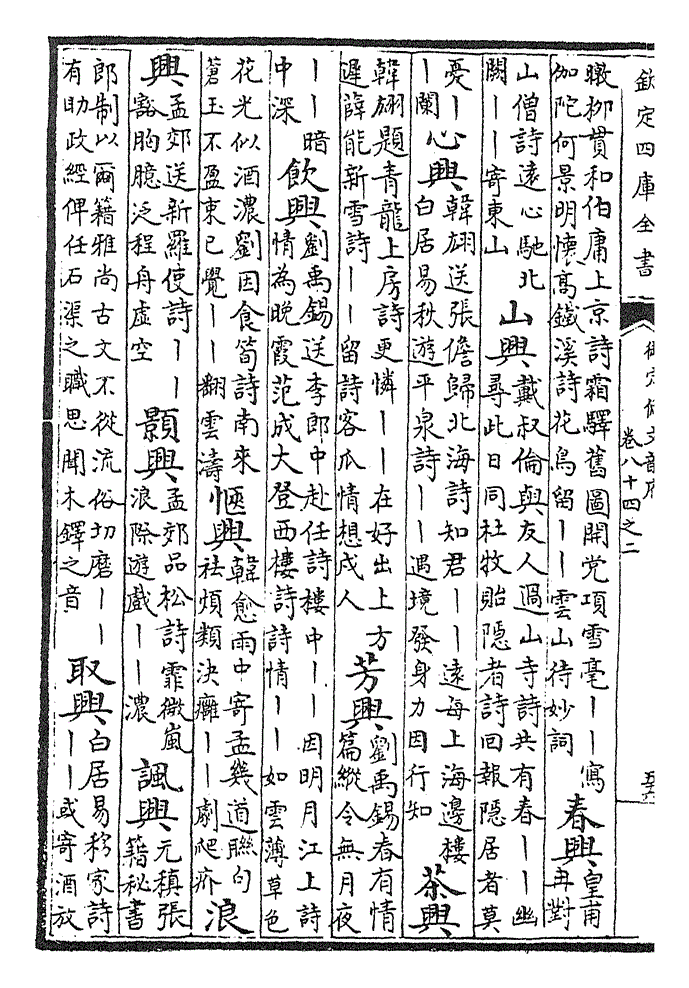 欽定四庫全書
御定佩文韻府
卷八十四之二
暾柳貫和伯庸上京詩霜驛舊圖開党項雪毫丨丨寫
伽陀何景明懷高鐵溪詩花鳥留丨丨雲山待妙詞
春興
皇甫
冉對
山僧詩遠心馳北
闕丨丨寄東山
山興
戴叔倫與友人過山寺詩共有春丨丨幽
尋此日同杜牧貽隱者詩回報隱居者莫
憂丨
丨闌
心興
韓翃送張儋歸北海詩知君丨丨遠每上海邊樓
白居易秋遊平泉詩丨丨遇境發身力因行知
茶興
韓翃題青龍上房詩更憐丨丨在好出上方
遲薛能新雪詩丨丨留詩客瓜情想戍人
芳興
劉禹錫春有情
篇縱令無月夜
丨丨暗
中深
飲興
劉禹錫送李郎中赴任詩樓中丨丨因明月江上詩
情為晚霞范成大登西樓詩詩情丨丨如雲薄草色
花光似酒濃劉因食筍詩南來
蒼玉不盈束已覺丨丨翻雲濤
愜興
韓愈雨中寄孟幾道聯句
祛煩類決癰丨丨劇爬疥
浪
興
孟郊送新羅使詩丨丨
豁胷臆泛程舟虛空
顥興
孟郊品松詩霏微嵐
浪際遊戲丨丨濃
諷興
元稹張
籍秘書
郎制以爾籍雅尚古文不從流俗切磨丨丨
有助政經俾任石渠之職思聞木鐸之音
取興
白居易移家詩
丨丨或寄酒放